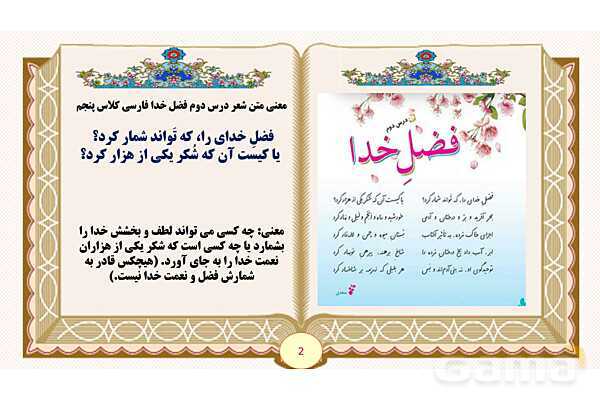 درس دوم
فضلِ خدا
فضل خدای را، که تواند شمار کرد؟ یا کیست آن که شکر یکی از هزار کرد؟
بحر آفرید و برّ و درختان و آدمی خورشید و ماه و انجم و لیل و نهار کرد
اجزای خاک مرده، به تأثیر آفتاب بُستان میوه و چمن و لاله‌زار کرد
ابر، آب داد بیخ درختان مرده را شاخ برهنه، پیرهن نوبهار کرد
توحیدگوی او، نه بنی‌آدم‌اند و بس هر بلبلی که زمزمه بر شاخسار کرد
سعدی
معنی متن شعر درس دوم فضل خدا فارسی کلاس پنجم
فضلِ خدای را، که تَواند شمار کرد؟
یا کیست آن که شُکر یکی از هزار کرد؟
معنی: چه کسی می تواند لطف و بخشش خدا را
بشمارد یا چه کسی است که شکر یکی از هزاران
نعمت خدا را به جای آورد. (هیچکس قادر به
شمارش فضل و نعمت خدا نیست.)
2
Gama